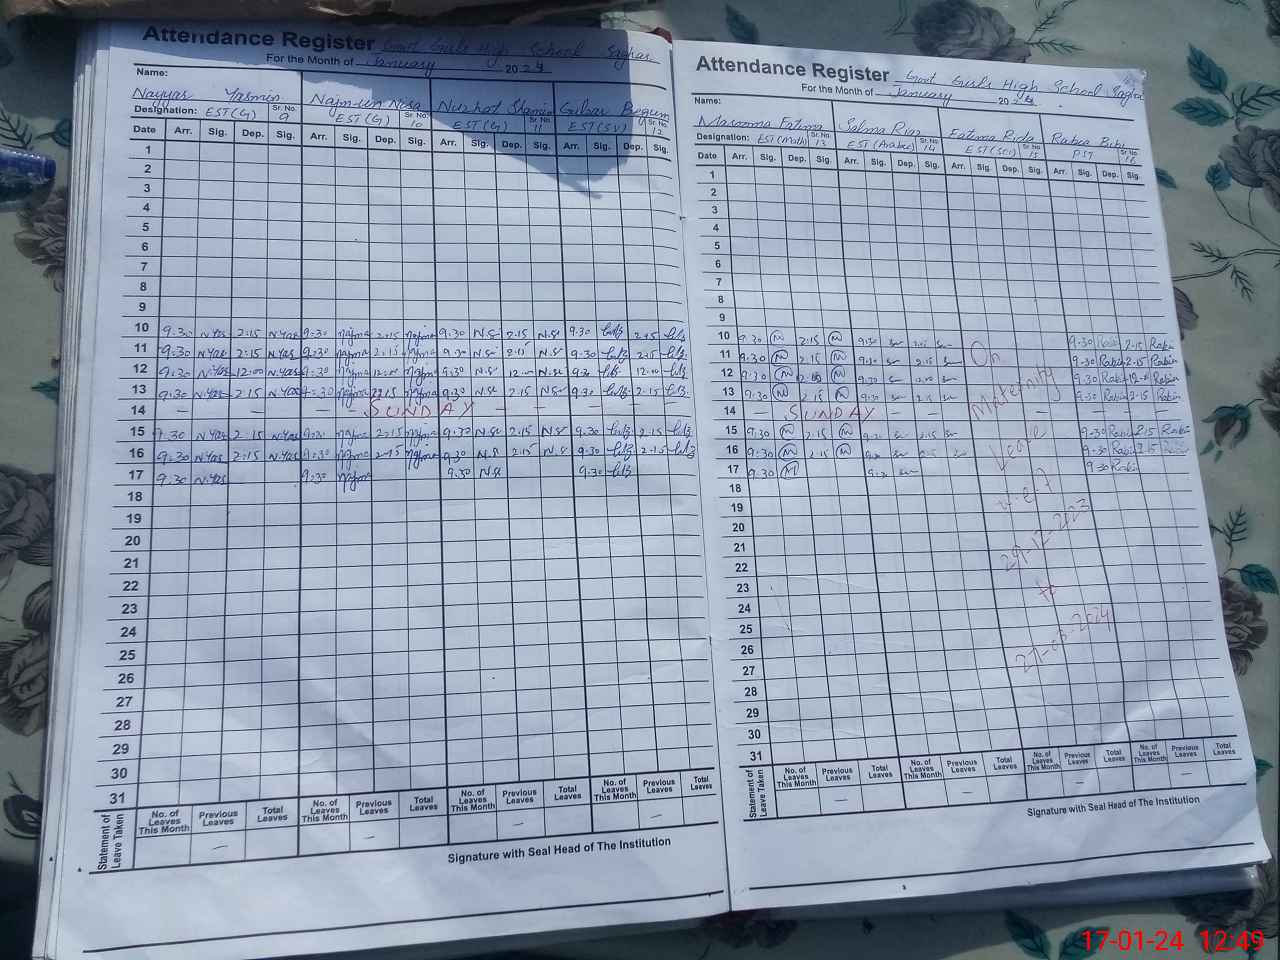 Attendance Register Govt Girls High School Saghar
For the Month of January 2024
Name:
Nayyar Yasmin Najm-un-Nisa Nuzhat Gulnar Begum
Designation: EST(G) Sr. No. 9 EST(G) Sr. No. 10 EST(G) Sr. No. 11 EST(SV) Sr. No. 12
Date Arr. Sig. Dep. Sig. Arr. Sig. Dep. Sig. Arr. Sig. Dep. Sig. Arr. Sig. Dep. Sig.
1
2
3
4
5
6
7
8
9
10 9:30 N.Yas 2:15 N.Yas 9:30 najma 2:15 najma 9.30 N.S 2.15 N.S 9.30 2.15
11 9:30 N.Yas 2:15 N.Yas 9:30 najma 2:15 najma 9.30 N.S 2.15 N.S 9.30 2.15
12 9:30 N.Yas 12:00 N.Yas 9:30 najma 12:00 najma 9.30 N.S 12.00 N.S 9.30 12.00
13 9:30 N.Yas 2:15 N.Yas 9:30 najma 2:15 najma 9.30 N.S 2.15 N.S 9.30 2.15
14 — — — — — SUNDAY — — — —
15 9:30 N.Yas 2:15 N.Yas 9:30 najma 2:15 najma 9.30 N.S 2.15 N.S 9.30 2.15
16 9:30 N.Yas 2:15 N.Yas 9:30 najma 2:15 najma 9.30 N.S 2.15 N.S 9.30 2.15
17 9:30 N.Yas 9:30 najma 9.30 N.S 9.30
18
19
20
21
22
23
24
25
26
27
28
29
30
31
Statement of Leave Taken
No. of Leaves This Month Previous Leaves Total Leaves No. of Leaves This Month Previous Leaves Total Leaves No. of Leaves This Month Previous Leaves Total Leaves No. of Leaves This Month Previous Leaves Total Leaves
— — — —
Signature with Seal Head of The Institution
Attendance Register Govt Girls High School Saghar
For the Month of January 2024
Name:
Fatima Salma Riaz Fatima Rida Rabia Bibi
Designation: EST(Math) Sr. No. 13 EST(Arabic) Sr. No. 14 EST(Sci) Sr. No. 15 PST Sr. No. 16
Date Arr. Sig. Dep. Sig. Arr. Sig. Dep. Sig. Arr. Sig. Dep. Sig. Arr. Sig. Dep. Sig.
1
2
3
4
5
6
7
8
9
10 9:30 M 2:15 M 9:30 2:15 9:30 Rabia 2:15 Rabia
11 9:30 M 2:15 M 9:30 2:15 9:30 Rabia 2:15 Rabia
12 9:30 M M 9:30 9:30 Rabia 12:00 Rabia
13 9:30 M 2:15 M 9:30 2:15 9:30 Rabia 2:15 Rabia
14 — — SUNDAY — — — — — —
15 9:30 M 2:15 M 9:30 2:15 9:30 Rabia 2:15 Rabia
16 9:30 M 2:15 M 9:30 2:15 9:30 Rabia 2:15 Rabia
17 9:30 M 9:30 9:30 Rabia
18
19
20
21
22
23
24
25
26
27
28
29
30
31
On
Maternity
Leave
w.e.f
29-12-2023
to
27-03-2024
Statement of Leave Taken
No. of Leaves This Month Previous Leaves Total Leaves No. of Leaves This Month Previous Leaves Total Leaves No. of Leaves This Month Previous Leaves Total Leaves No. of Leaves This Month Previous Leaves Total Leaves
— — — —
Signature with Seal Head of The Institution
17-01-24 12:49